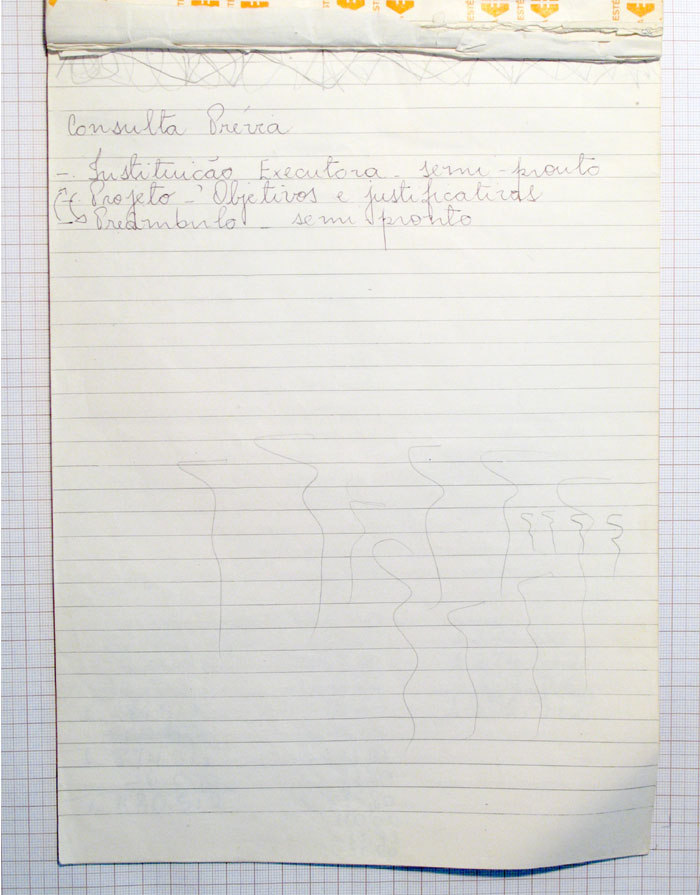 Consulta Prévia
- Instituição Executora - semi-pronto
- Projeto - Objetivos e justificativas
- Preâmbulo - semi pronto